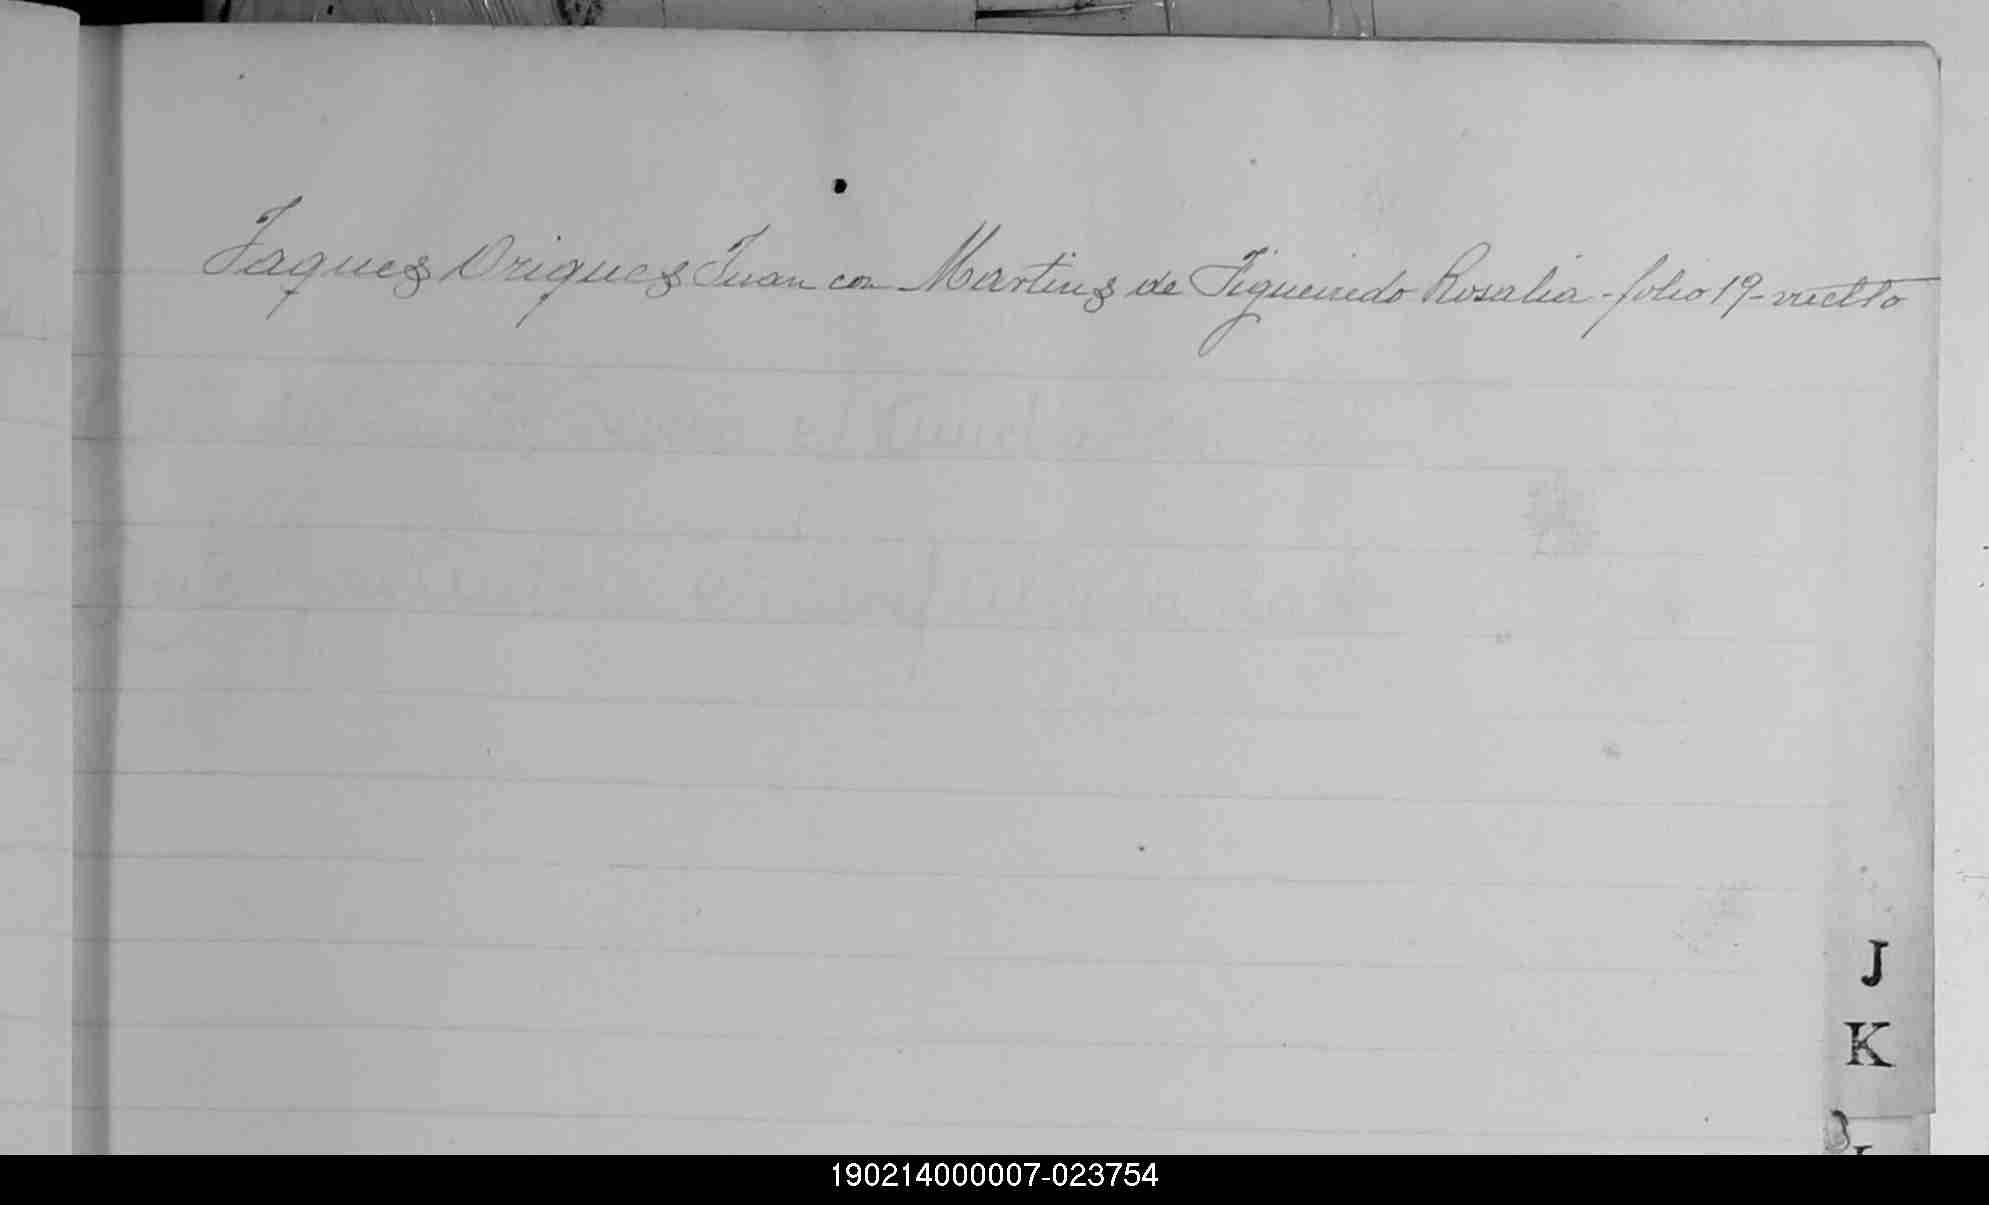 Jaques Oriques Juan con Martins de Figueiredo Rosalia - folio 19 - vuelto
J
K
190214000007-023754